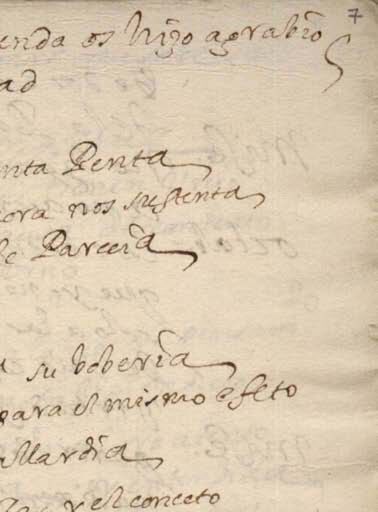 7
enda os hizo agrabio
ad
enta Renta
ora nos sustenta
le Parecia
su boberia
para el mismo efeto
allardia
y el conceto